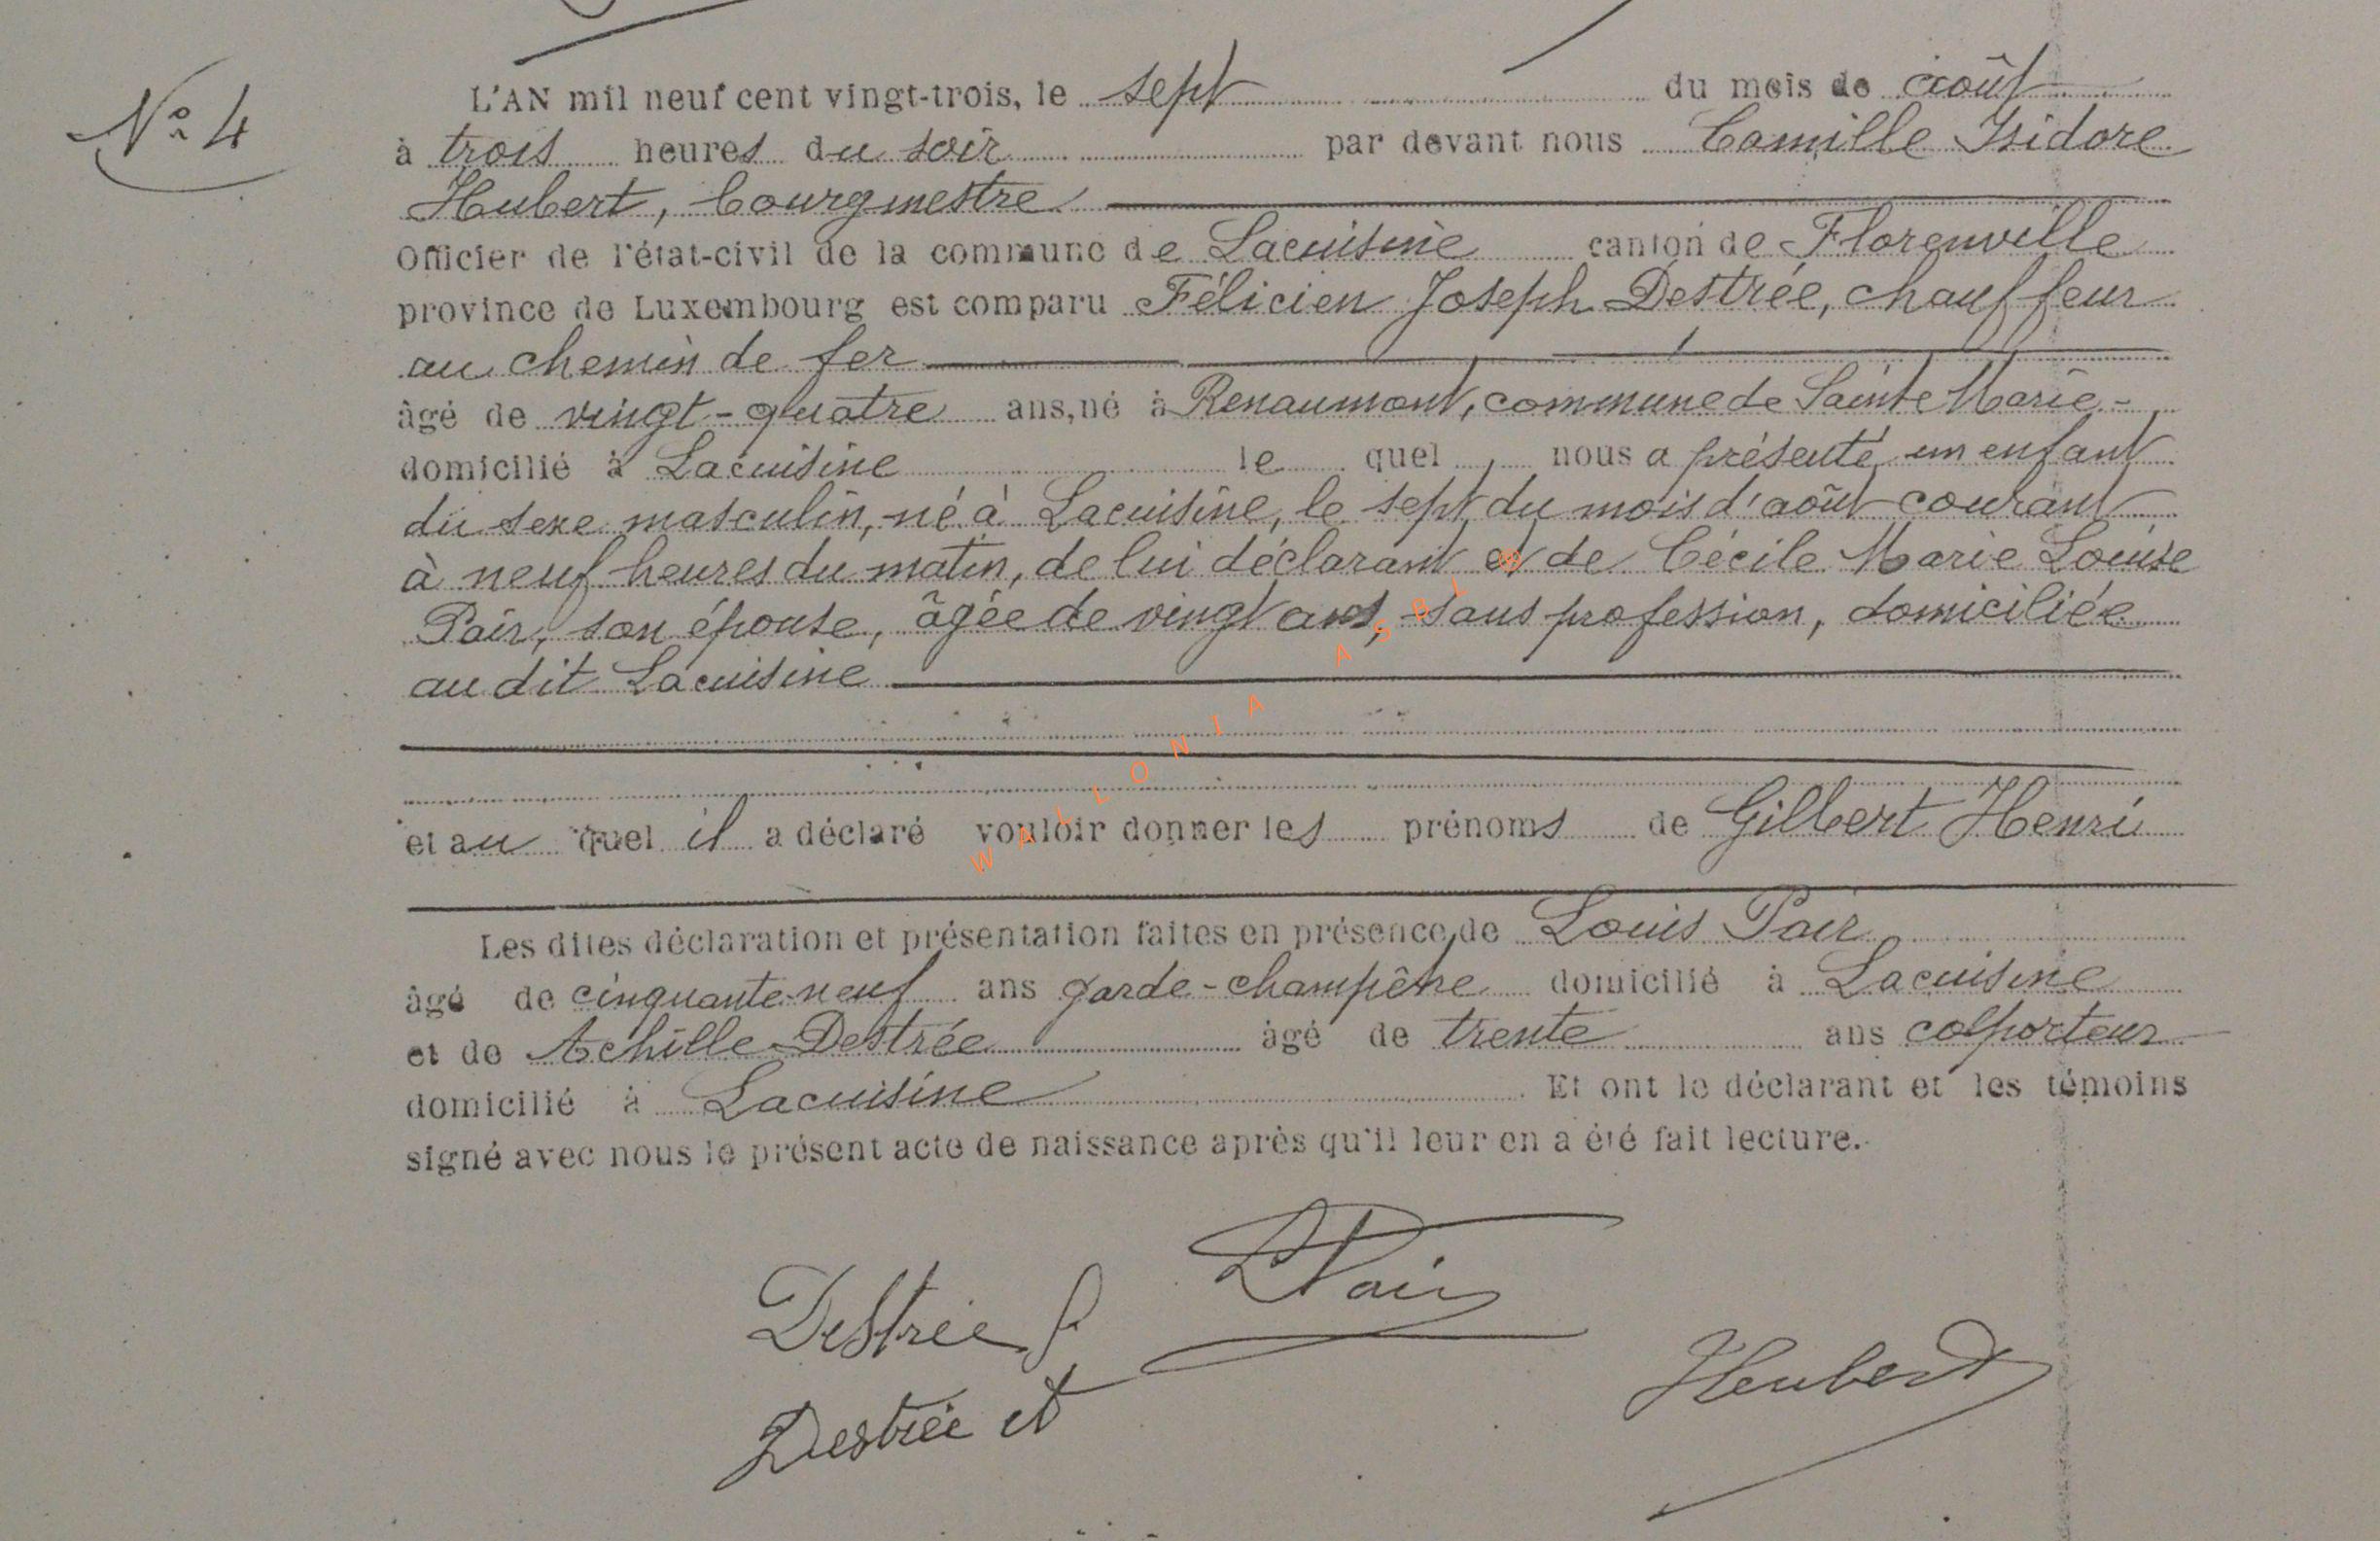 N° 4
L'AN mil neuf cent vingt-trois, le sept du mois de août
à trois heures du soir par devant nous Camille Isidore
Hubert, bourgmestre
Officier de l'état-civil de la commune de Lacuisine canton de Florenville
province de Luxembourg est comparu Félicien Joseph Destrée, chauffeur
au chemin de fer
âgé de vingt-quatre ans, né à Renaumont, commune de Sainte Marie-
domicilié à Lacuisine le quel, nous a présenté un enfant
du sexe masculin, né à Lacuisine, le sept du mois d'août courant
à neuf heures du matin, de lui déclarant et de Cécile Marie Louise
Pair, son épouse, âgée de vingt ans, sans profession, domiciliée
au dit Lacuisine
et au quel il a déclaré vouloir donner les prénoms de Gilbert Henri
Les dites déclaration et présentation faites en présence de Louis Pair
âgé de cinquante-neuf ans garde-champêtre domicilié à Lacuisine
et de Achille Destrée âgé de trente ans colporteur
domicilié à Lacuisine. Et ont le déclarant et les témoins
signé avec nous le présent acte de naissance après qu'il leur en a été fait lecture.
L Pair
Destrée f
Hubert
Destrée
WALLONIA ASBL